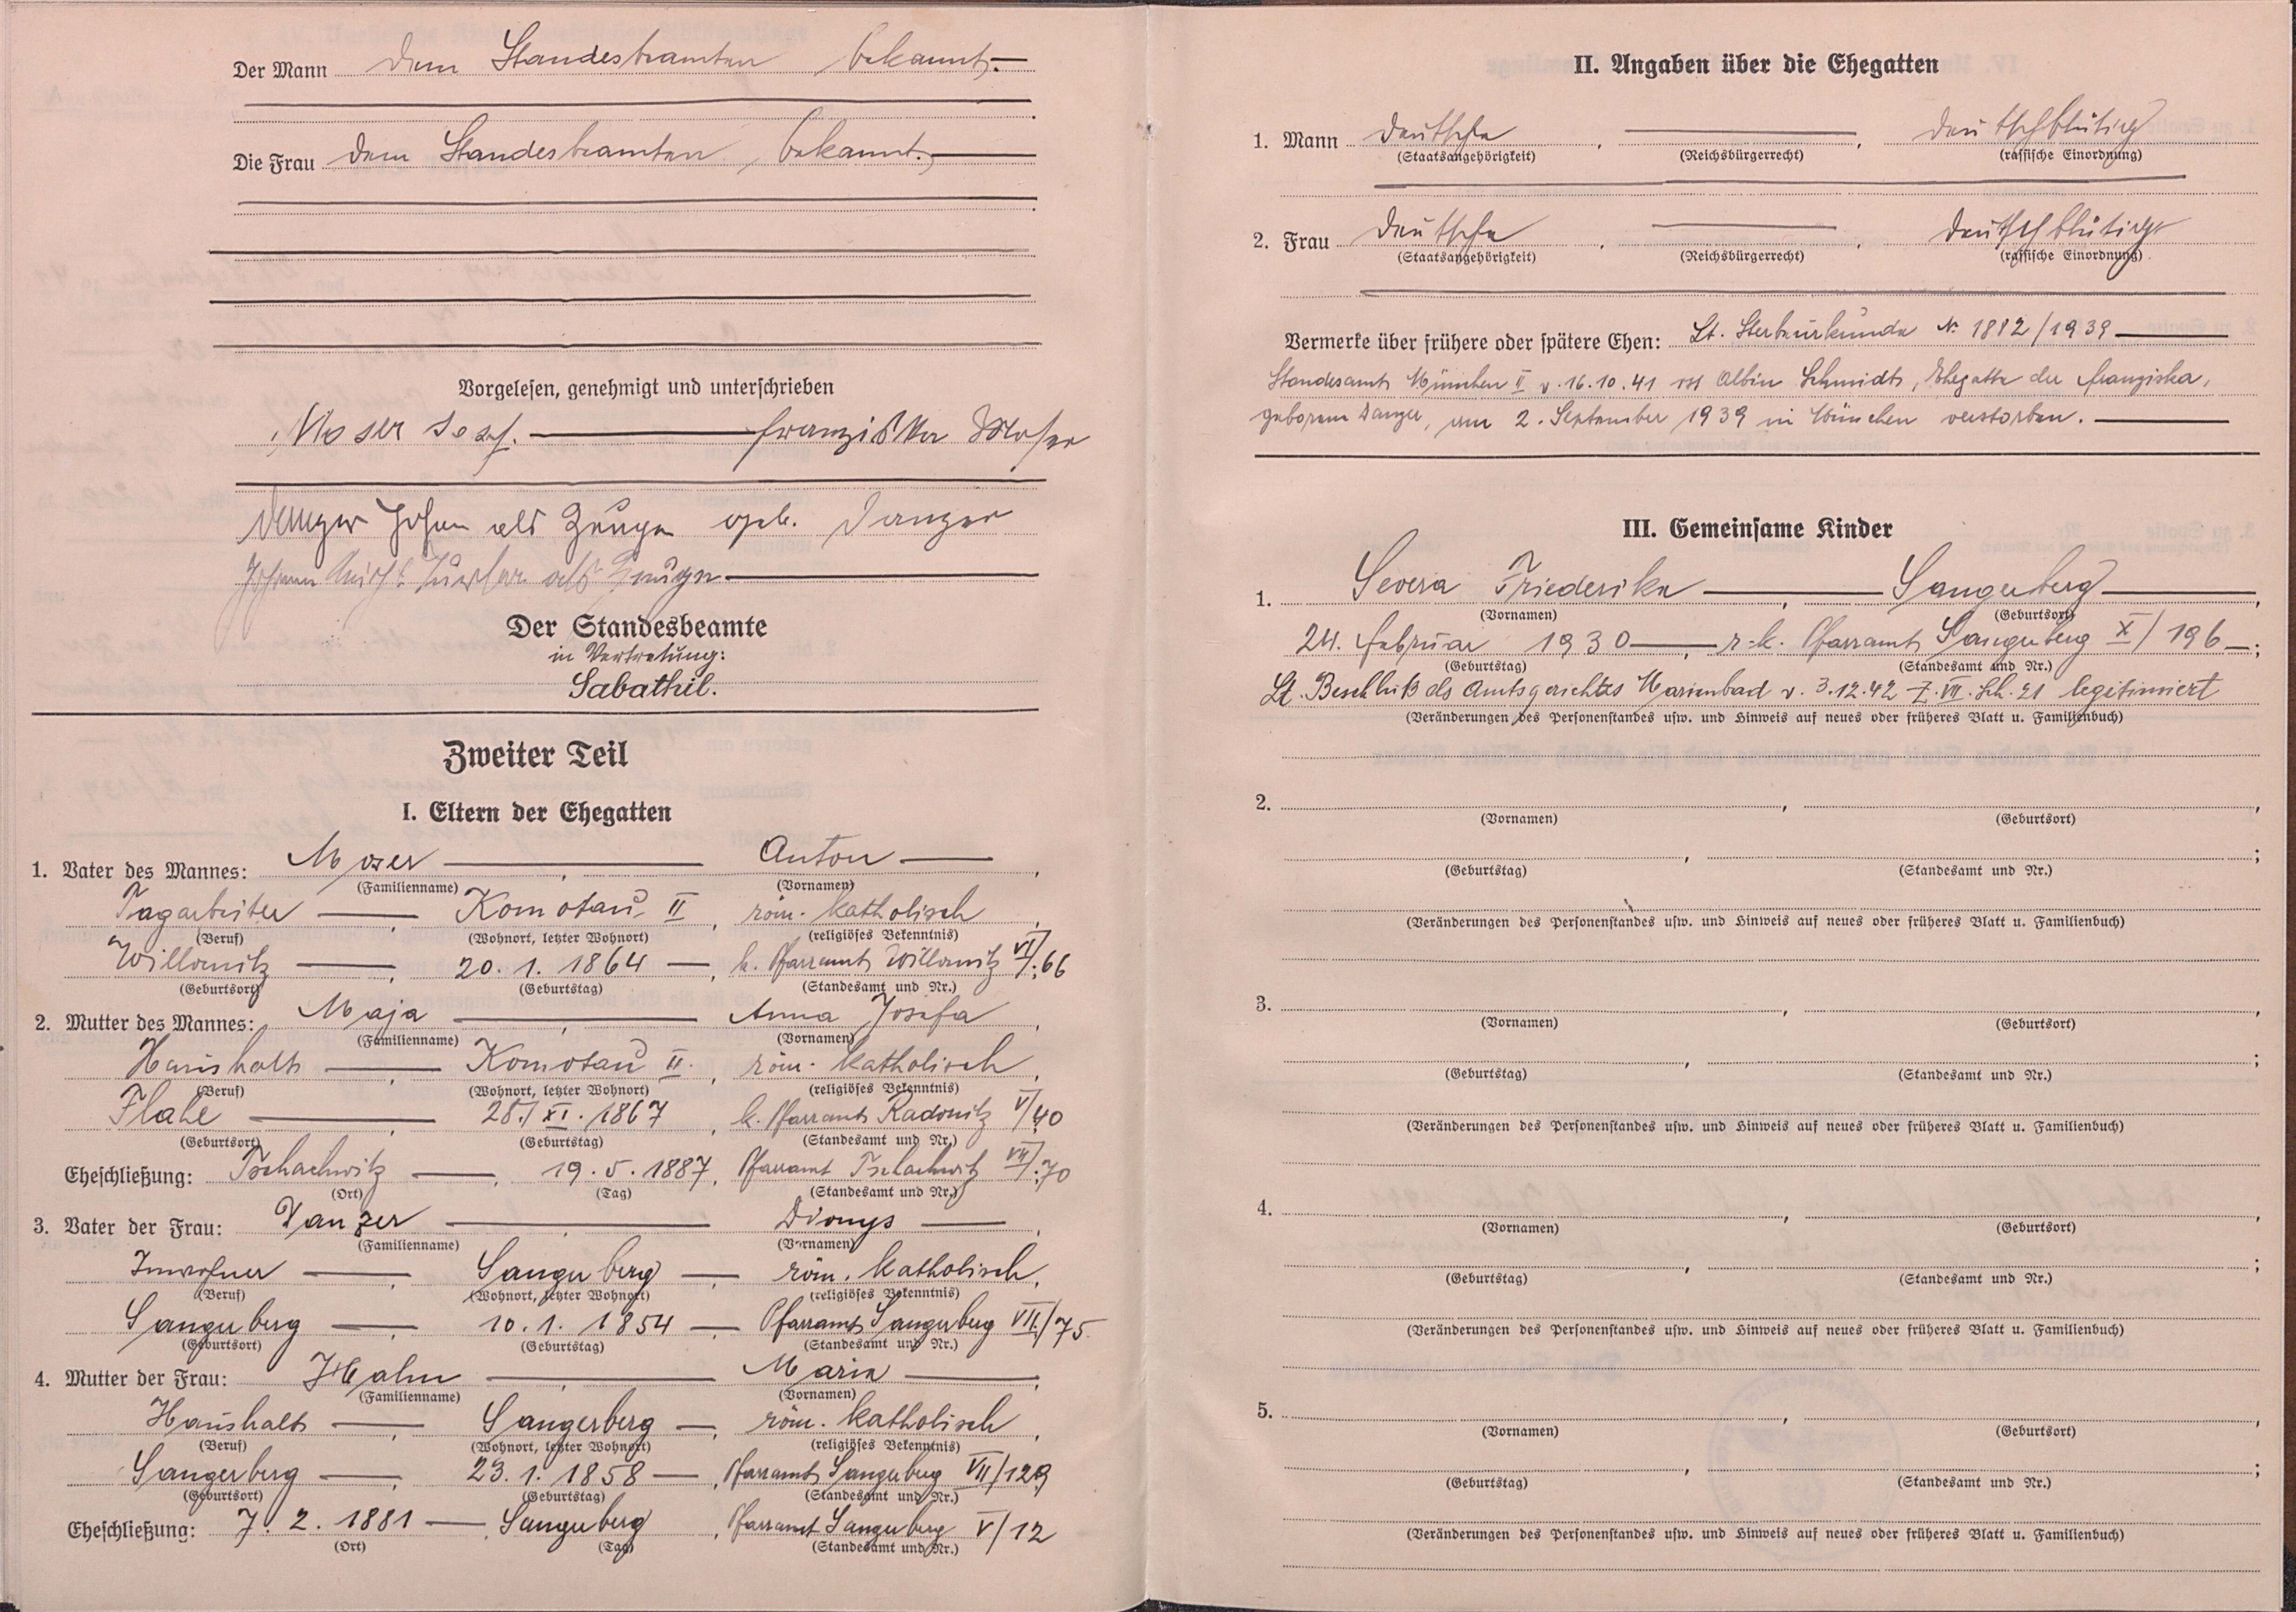 Der Mann dem Standesbeamten bekannt.
Die Frau dem Standesbeamten bekannt.
Vorgelesen, genehmigt und unterschrieben
Moser Josef. Franziska Moser
Danzer als Zeuge geb. Danzer
Johann als Zeuge
Der Standesbeamte
in Vertretung:
Sabathil.
Zweiter Teil
I. Eltern der Ehegatten
1. Vater des Mannes: Moser, Anton,
(Familienname) (Vornamen)
Tagarbeiter, Komotau II, röm. katholisch,
(Beruf) (Wohnort, letzter Wohnort) (religiöses Bekenntnis)
Willomitz, 20. 1. 1864, k. Pfarramt Willomitz VI/66
(Geburtsort) (Geburtstag) (Standesamt und Nr.)
2. Mutter des Mannes: Maja, Anna Josefa,
(Familienname) (Vornamen)
Haushalt, Komotau II., röm. katholisch,
(Beruf) (Wohnort, letzter Wohnort) (religiöses Bekenntnis)
Flahe, 28. XI. 1867, k. Pfarramt Radonitz V/40
(Geburtsort) (Geburtstag) (Standesamt und Nr.)
Eheschließung: Tschachwitz, 19. 5. 1887, Pfarramt Tschachwitz VII/70
(Ort) (Tag) (Standesamt und Nr.)
3. Vater der Frau: Danzer, Dionys,
(Familienname) (Vornamen)
Inwohner, Sangerberg, röm. katholisch,
(Beruf) (Wohnort, letzter Wohnort) (religiöses Bekenntnis)
Sangerberg, 10. 1. 1854, Pfarramt Sangerberg VII/75.
(Geburtsort) (Geburtstag) (Standesamt und Nr.)
4. Mutter der Frau: Hahn, Maria,
(Familienname) (Vornamen)
Haushalt, Sangerberg, röm. katholisch,
(Beruf) (Wohnort, letzter Wohnort) (religiöses Bekenntnis)
Sangerberg, 23. 1. 1858, Pfarramt Sangerberg VII/129
(Geburtsort) (Geburtstag) (Standesamt und Nr.)
Eheschließung: 7. 2. 1881, Sangerberg, Pfarramt Sangerberg V/12
(Ort) (Tag) (Standesamt und Nr.)
II. Angaben über die Ehegatten
1. Mann Deutsche, , deutschblütig
(Staatsangehörigkeit) (Reichsbürgerrecht) (rassische Einordnung)
2. Frau Deutsche, , deutschblütig
(Staatsangehörigkeit) (Reichsbürgerrecht) (rassische Einordnung)
Vermerke über frühere oder spätere Ehen: Lt. Sterbeurkunde Nr. 1882/1939
Standesamt München II v. 16.10.41 ist Albin Schmidt, Ehegatte der Franziska,
geborene Danzer, am 2. September 1939 in München verstorben.
III. Gemeinsame Kinder
1. Severa Friederika, Sangerberg,
(Vornamen) (Geburtsort)
24. Februar 1930, r.-k. Pfarramt Sangerberg X/196;
(Geburtstag) (Standesamt und Nr.)
Lt. Beschluß des Amtsgerichtes Marienbad v. 3.12.42 Z. VII. Lh. 21 legitimiert
(Veränderungen des Personenstandes usw. und Hinweis auf neues oder früheres Blatt u. Familienbuch)
2. , ,
(Vornamen) (Geburtsort)
, ;
(Geburtstag) (Standesamt und Nr.)
(Veränderungen des Personenstandes usw. und Hinweis auf neues oder früheres Blatt u. Familienbuch)
3. , ,
(Vornamen) (Geburtsort)
, ;
(Geburtstag) (Standesamt und Nr.)
(Veränderungen des Personenstandes usw. und Hinweis auf neues oder früheres Blatt u. Familienbuch)
4. , ,
(Vornamen) (Geburtsort)
, ;
(Geburtstag) (Standesamt und Nr.)
(Veränderungen des Personenstandes usw. und Hinweis auf neues oder früheres Blatt u. Familienbuch)
5. , ,
(Vornamen) (Geburtsort)
, ;
(Geburtstag) (Standesamt und Nr.)
(Veränderungen des Personenstandes usw. und Hinweis auf neues oder früheres Blatt u. Familienbuch)